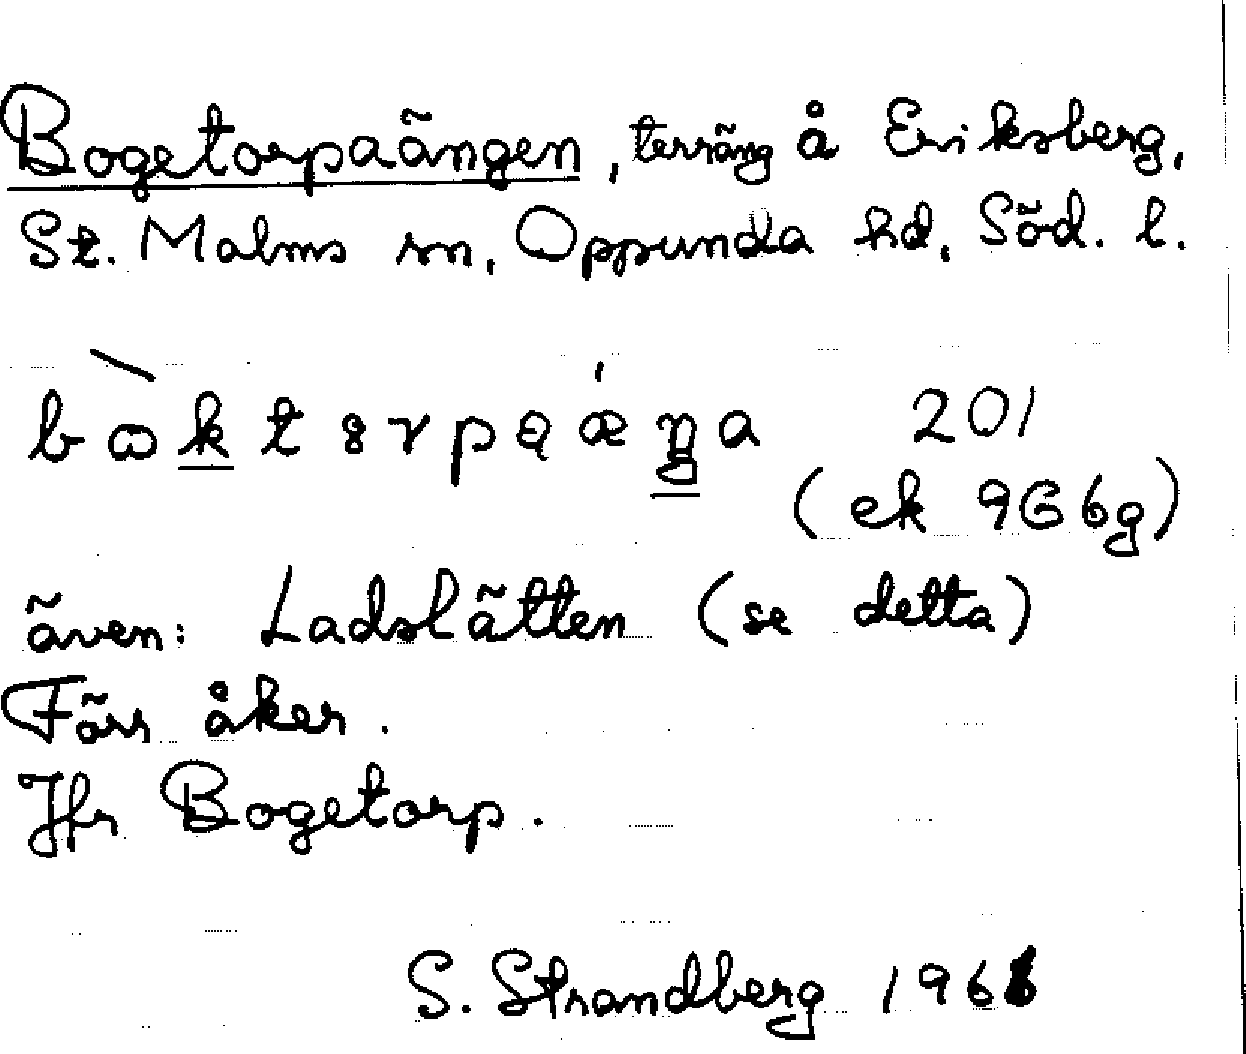 Bogetorpaängen, terräng å Eriksberg,
St. Malms sn, Oppunda hd, Söd. l.
201
(ek 9G 6g)
även: Ladslätten (se detta)
Förr åker.
Jfr Bogetorp.
S. Strandberg 196